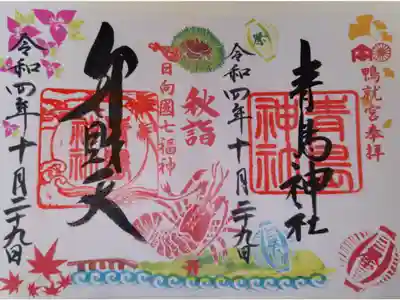 鴨就宮奉拝
青島神社
青島
神社
令和四年十月二十九日
祭
秋詣
日向國七福神
弁財天
令和四年十月二十九日